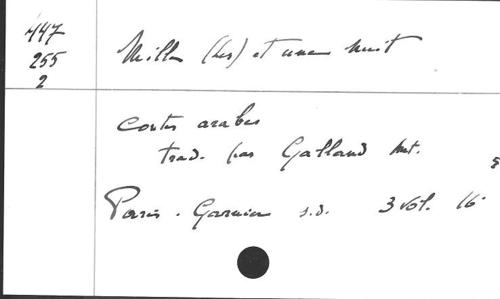 447
255
2
Mille (les) et une nuit
contes arabes
trad. par Galland Ant.
Paris. Garnier s.d. 3 vol. 16°